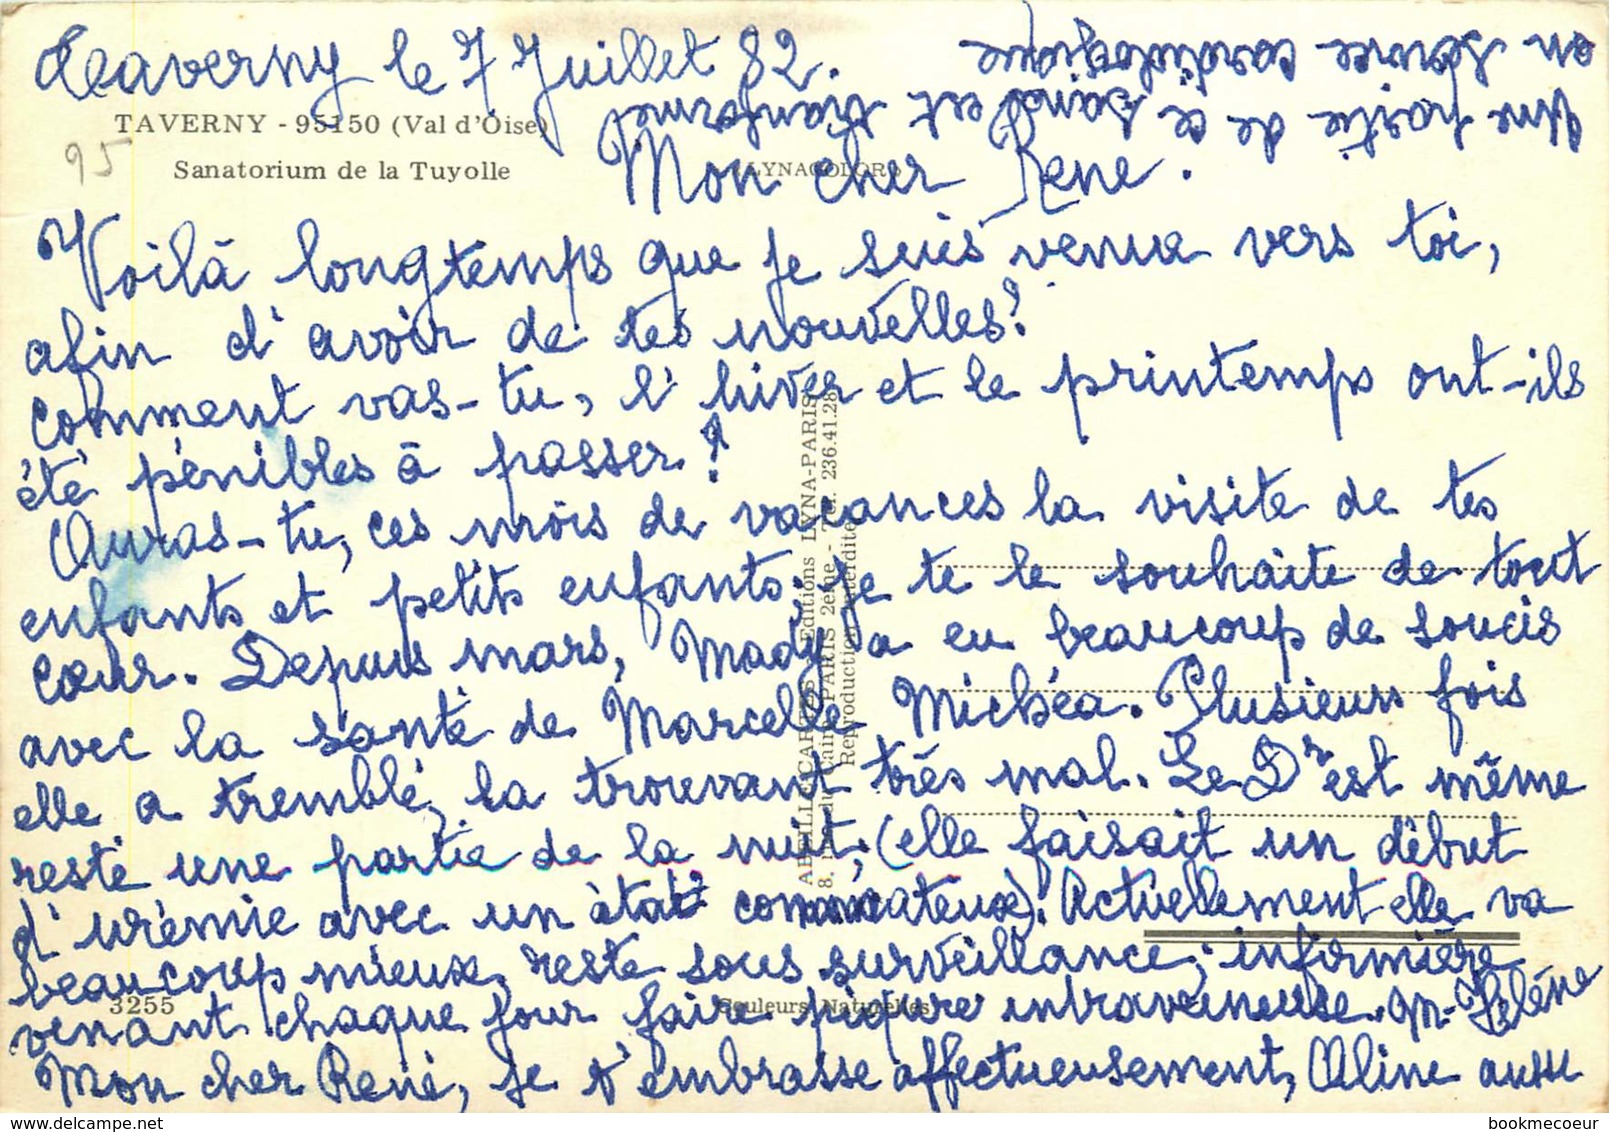 Taverny le 7 Juillet 82.
Une partie de ce Sana est transformé
en service cardiologique
TAVERNY - 95150 (Val d'Oise)
Sanatorium de la Tuyolle
95
LYNACOLOR
Mon cher René.
Voilà longtemps que je suis venue vers toi,
afin d'avoir de tes nouvelles?
Comment vas-tu, l'hiver et le printemps ont-ils
été pénibles à passer?
Auras-tu, ces mois de vacances la visite de tes
enfants et petits enfants, je te le souhaite de tout
cœur. Depuis mars, Mady a eu beaucoup de soucis
avec la santé de Marcelle Michéa. Plusieurs fois
elle a tremblé, la trouvant très mal. Le Dr est même
resté une partie de la nuit, (elle faisait un début
d'urémie avec un état comateux). Actuellement elle va
beaucoup mieux, reste sous surveillance, infirmière
venant chaque jour faire piqûre intraveineuse. M-Hélène
Mon cher René, je t'embrasse affectueusement, Aline aussi
Editions LYNA-PARIS
8, rue du Caire - PARIS 2ème - Tél. 236.41.28
Reproduction interdite
3255
Couleurs Naturelles
bookmecoeur